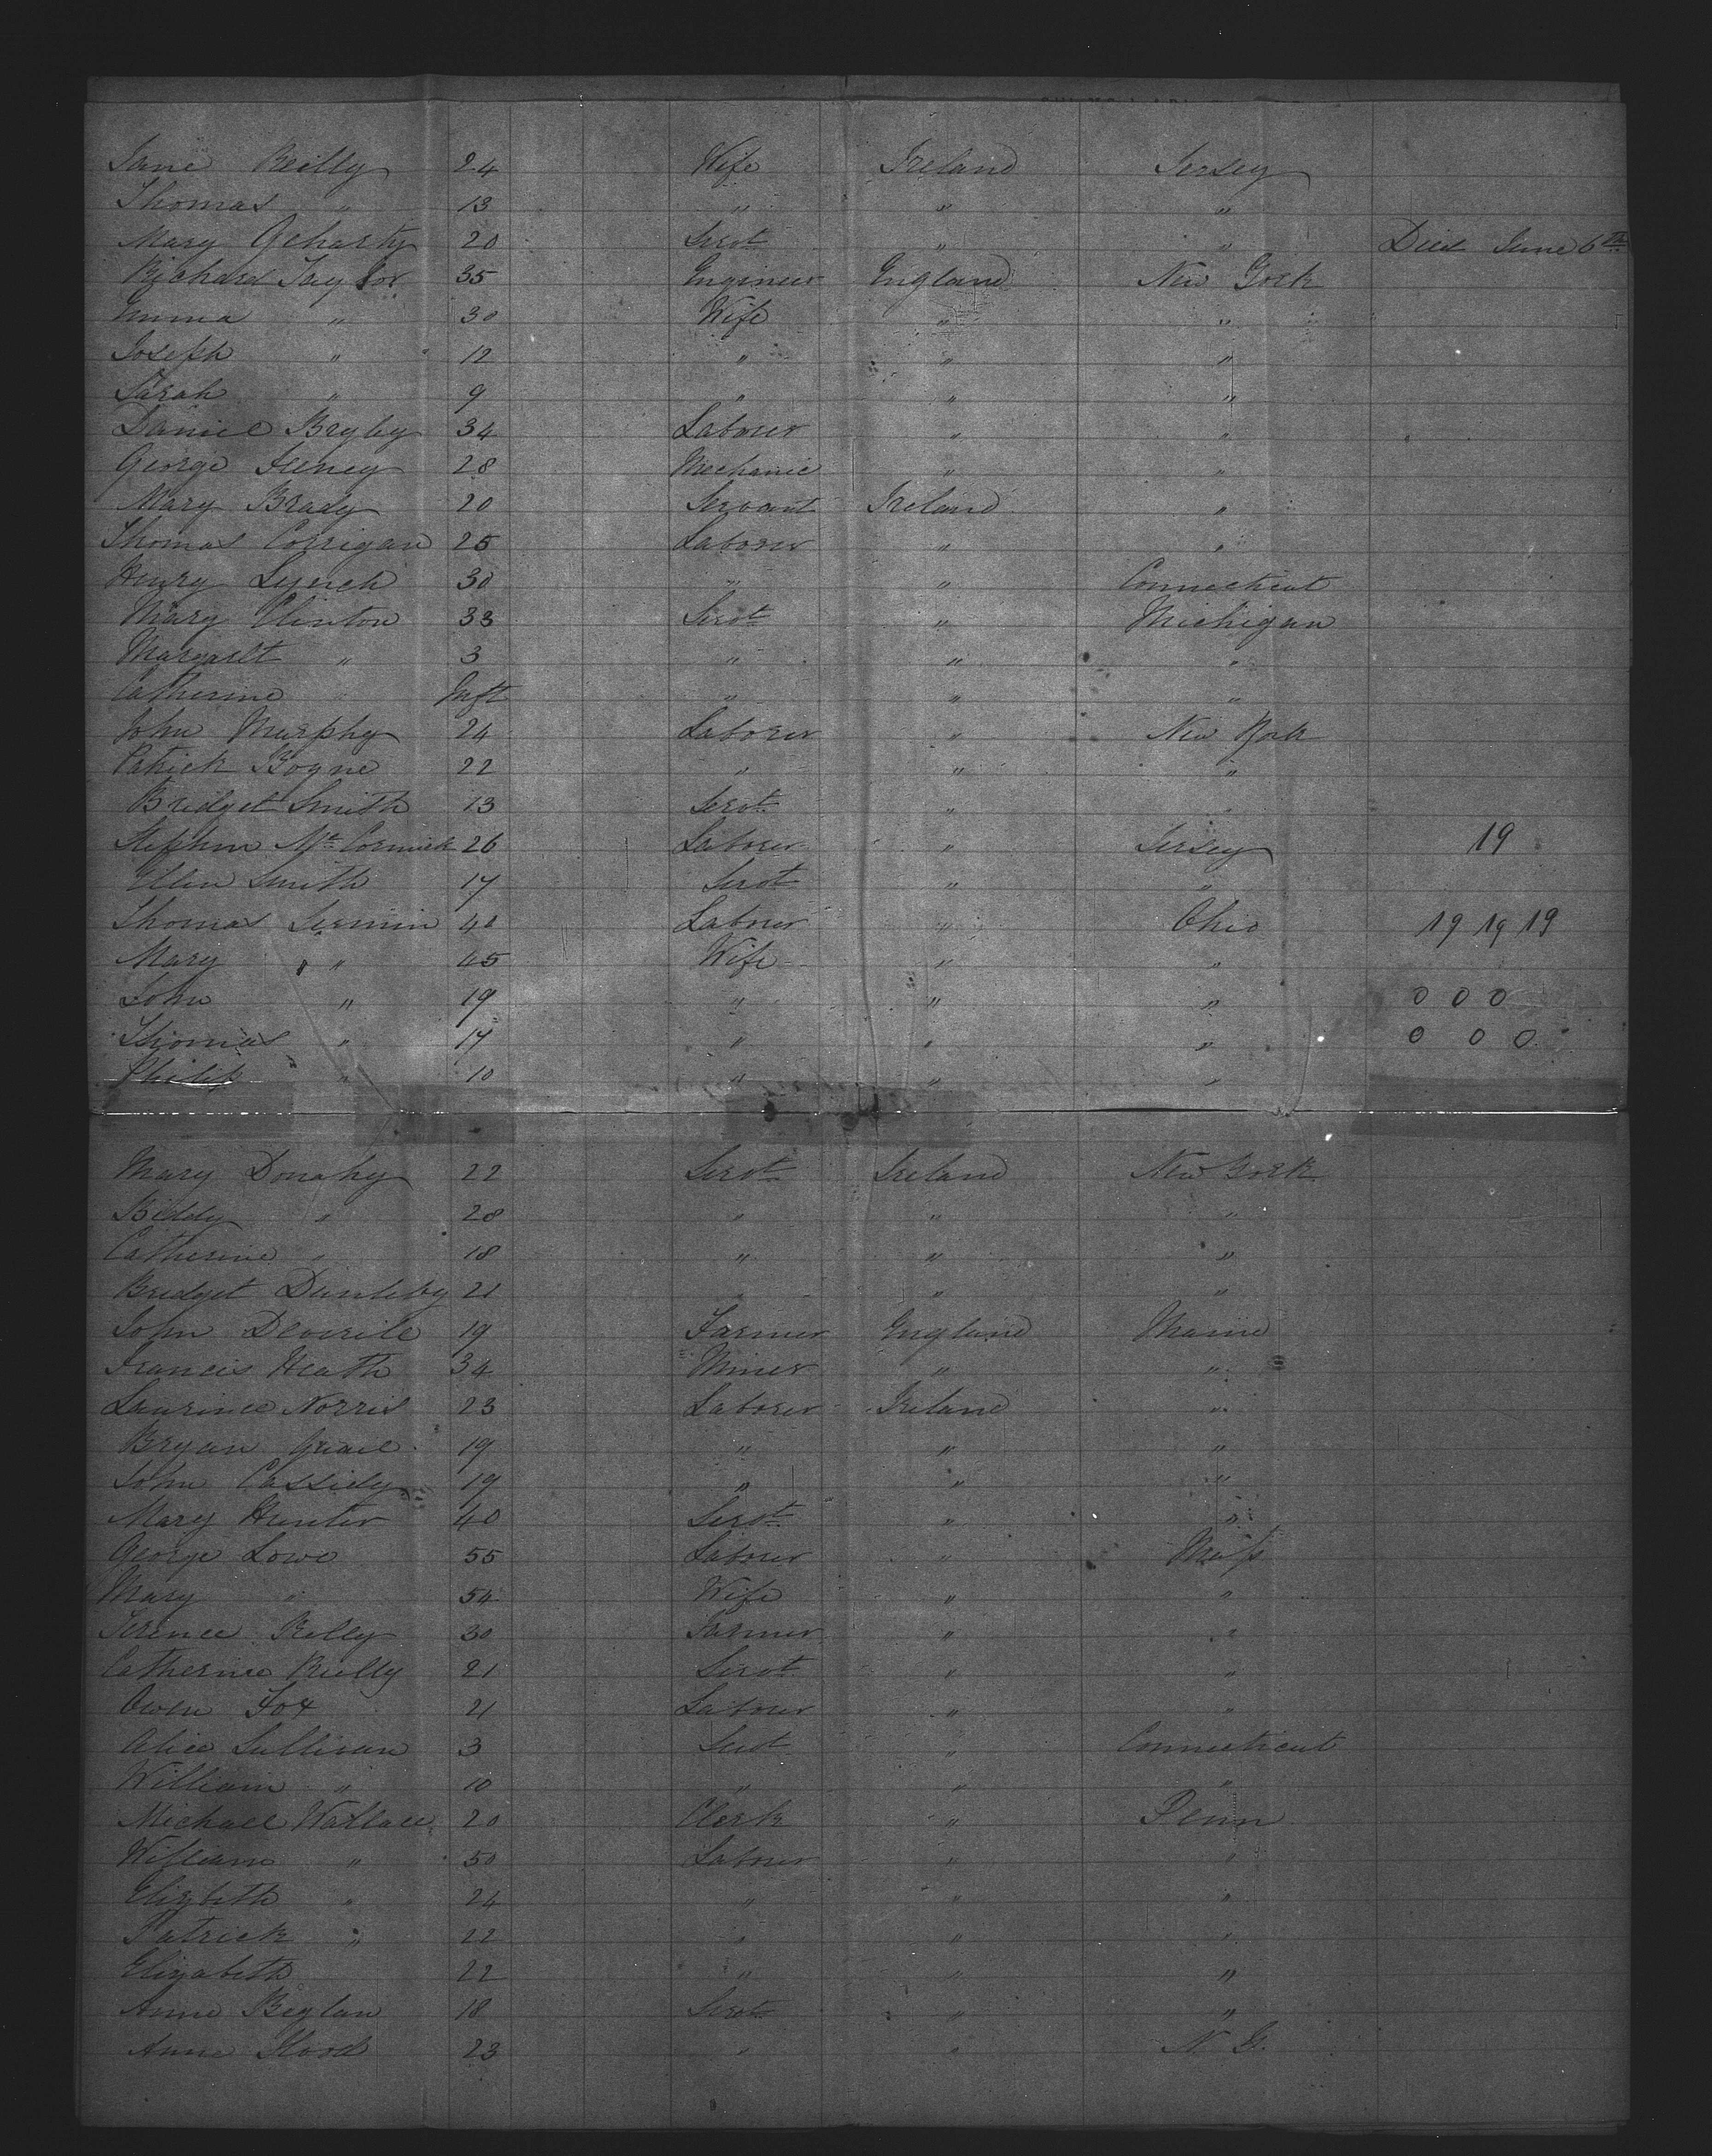 Jane Reilly 24 Wife Ireland Jersey
Thomas " 13 " " "
Mary Geharty 20 Servt " " Died June 6th
Richard Taylor 35 Engineer England New York
Emma " 30 Wife " "
Joseph " 12 " " "
Sarah " 9 " " "
Daniel Bryby 34 Laborer " "
George Feeney 28 Mechanic " "
Mary Brady 20 Servant Ireland "
Thomas Corrigan 25 Laborer " "
Henry Lynch 30 " " Connecticut
Mary Clinton 33 Servt " Michigan
Margarett " 3 " " "
Catherine " Inft " " "
John Murphy 24 Laborer " New York
Patrick Boyne 22 " " "
Bridget Smith 13 Servt " "
Stephen McCormick 26 Laborer " Jersey 19
Ellen Smith 17 Servt " "
Thomas 40 Laborer " Ohio 19 19 19
Mary " 45 Wife " "
John " 19 " " " 0 0 0
Thomas " 17 " " " 0 0 0
Philip " 10 " " "
Mary Donahy 22 Servt Ireland New York
Biddy " 20 " " "
Catherine " 18 " " "
Bridget Dunleby 21 " " "
John Deverile 19 Farmer England Maine
Francis Heath 34 Miner " "
Laurince Norris 23 Laborer Ireland "
Bryan 19 " " "
John Cassidy 19 " " "
Mary Hunter 40 Servt " "
George Lowe 55 Laborer " Mass
Mary " 54 Wife " "
Terence Reilly 30 Farmer " "
Catherine Reilly 21 Servt " "
Owen Fox 21 Laborer " "
Alice Sullivan 3 Servt " Connecticut
William " 10 " " "
Michael Wallace 20 Clerk " Penn
William " 50 Laborer " "
Elizbeth " 24 " " "
Patrick " 22 " " "
Elizabeth 22 " " "
Anne Beglan 18 Servt " "
Anne 23 " " N Y.